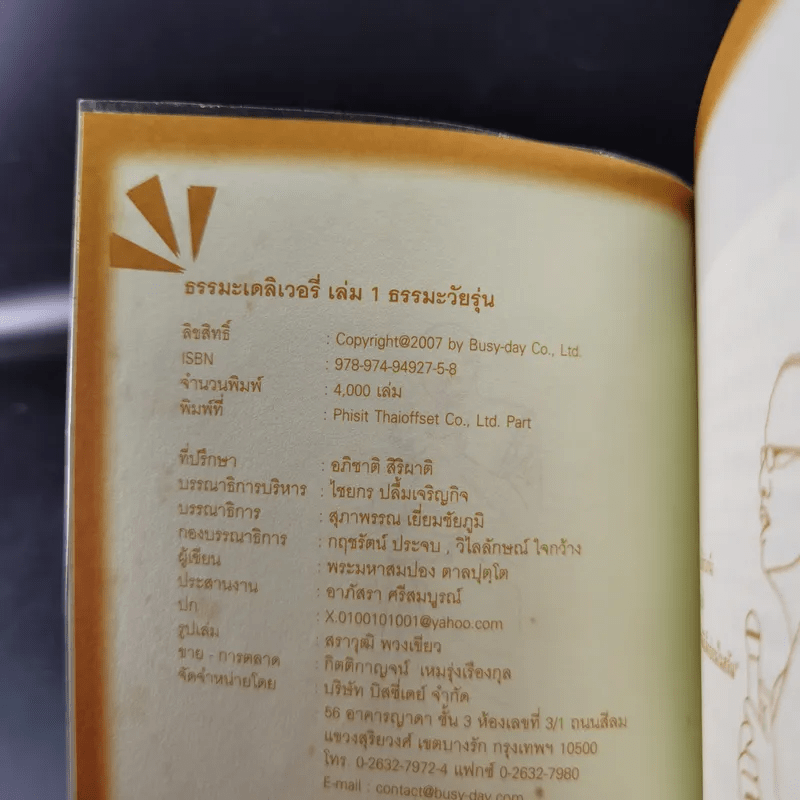 ธรรมะเดลิเวอรี่ เล่ม 1 ธรรมะวัยรุ่น
ลิขสิทธิ์ : Copyright@2007 by Busy-day Co., Ltd.
ISBN : 978-974-94927-5-8
จำนวนพิมพ์ : 4,000 เล่ม
พิมพ์ที่ : Phisit Thaioffset Co., Ltd. Part
ที่ปรึกษา : อภิชาติ สิริผาติ
บรรณาธิการบริหาร : ไชยกร ปลื้มเจริญกิจ
บรรณาธิการ : สุภาพรรณ เยี่ยมชัยภูมิ
กองบรรณาธิการ : กฤชรัตน์ ประจบ , วิไลลักษณ์ ใจกว้าง
ผู้เขียน : พระมหาสมปอง ตาลปุตฺโต
ประสานงาน : อาภัสรา ศรีสมบูรณ์
ปก : X.0100101001@yahoo.com
รูปเล่ม : สราวุฒิ พวงเขียว
ขาย - การตลาด : กิตติกาญจน์ เหมรุ่งเรืองกุล
จัดจำหน่ายโดย : บริษัท บิสซี่เดย์ จำกัด
56 อาคารญาดา ชั้น 3 ห้องเลขที่ 3/1 ถนนสีลม
แขวงสุริยวงศ์ เขตบางรัก กรุงเทพฯ 10500
โทร. 0-2632-7972-4 แฟกซ์ 0-2632-7980
E-mail : contact@busy-day.com